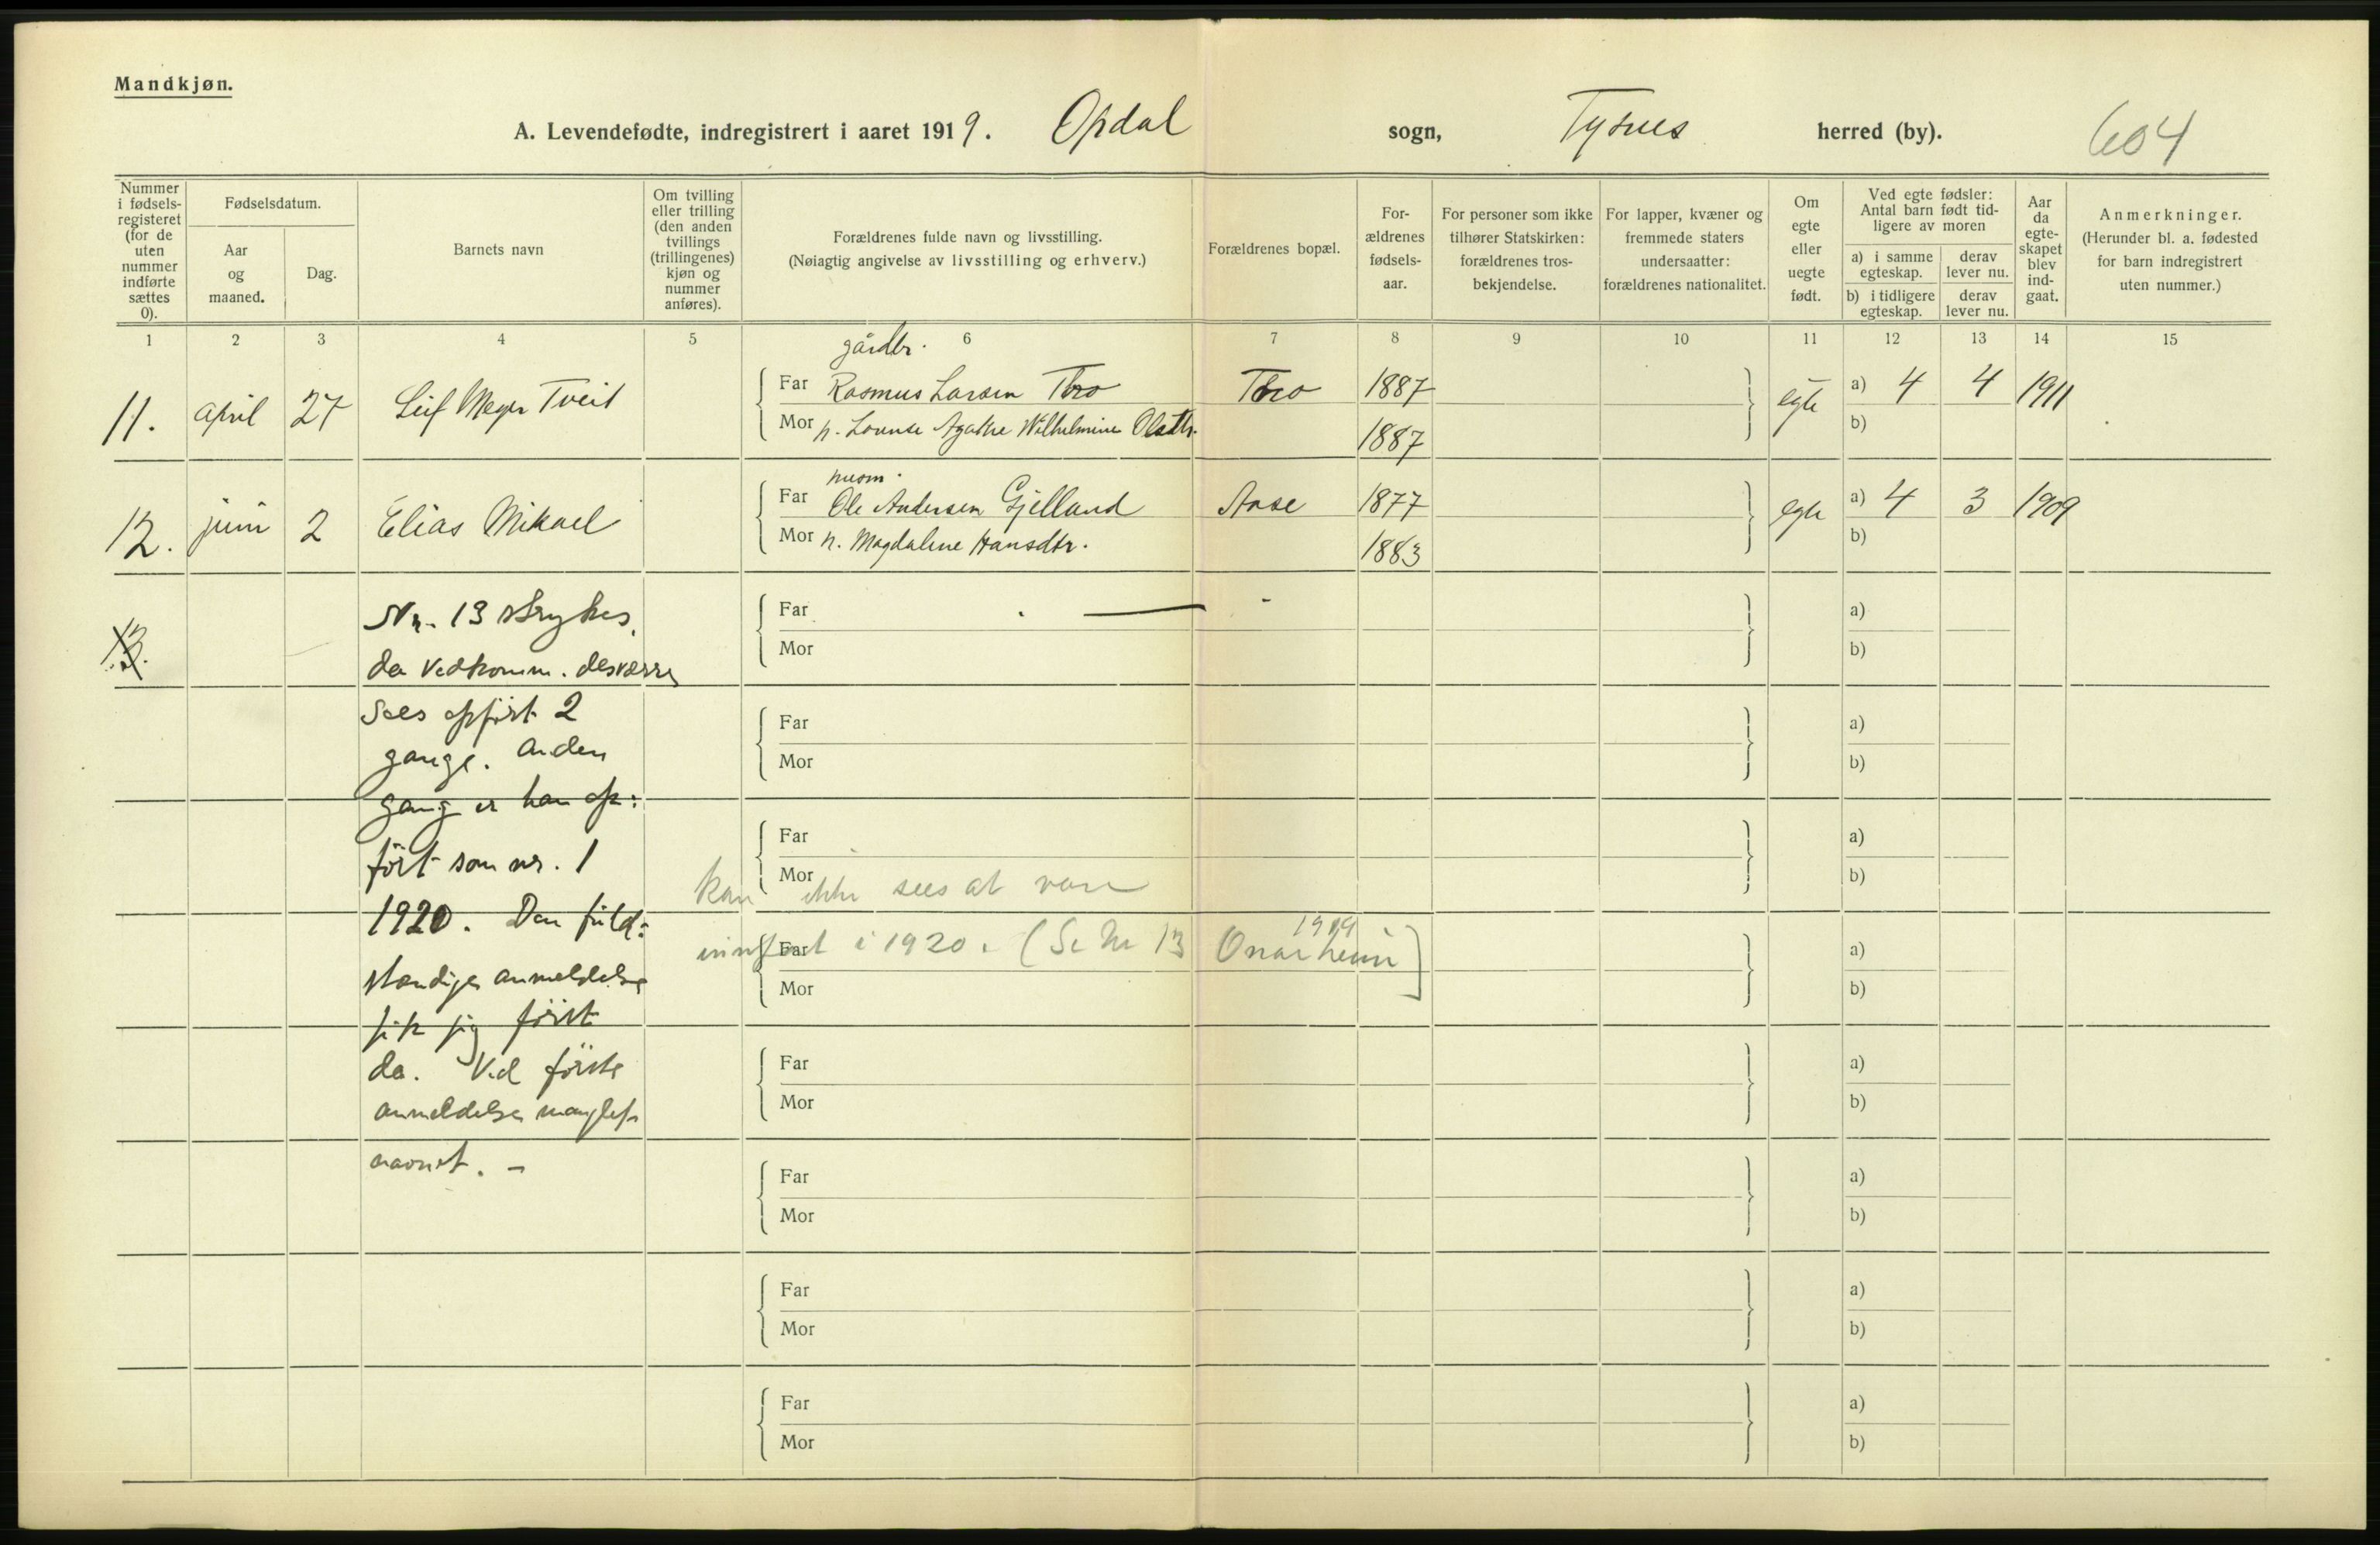 Mandkjøn.
A. Levendefødte, indregistrert i aaret 1919. Opdal sogn, Tysnes herred (by). 604
Nummer i fødselsregisteret (for de uten nummer indførte sættes 0).
Fødselsdatum.
Aar og maaned.
Dag.
Barnets navn
Om tvilling eller trilling (den anden tvillings (trillingenes) kjøn og nummer anføres).
Forældrenes fulde navn og livsstilling.
(Nøiagtig angivelse av livsstilling og erhverv.)
Forældrenes bopæl.
For-
ældrenes
fødsels-
aar.
For personer som ikke
tilhører Statskirken:
forældrenes tros-
bekjendelse.
For lapper, kvæner og
fremmede staters
undersaatter:
forældrenes nationalitet.
Om
egte
eller
uegte
født.
Ved egte fødsler:
Antal barn født tid-
ligere av moren
a) i samme egteskap.
derav lever nu.
b) i tidligere egteskap.
derav lever nu.
Aar da egte-skapet blev ind-gaat.
Anmerkninger.
(Herunder bl. a. fødested
for barn indregistrert
uten nummer.)
1 2 3 4 5 6 7 8 9 10 11 12 13 14 15
gårdbr.
11. april 27 Leif Meyer Tveit Far Rasmus Larsen Thro Thro 1887 egte a) 4 4 1911
Mor n. Lovise Agathe Wilhelmine Olsdtr. 1887 b)
husm.
12. juni 2 Elias Mikael Far Ole Andersen Gjelland Aase 1877 egte a) 4 3 1909
Mor n. Magdalene Hansdtr. 1883 b)
13. Nr. 13 strykes, Far — a)
da vedkomm. desværre Mor b)
sees opført 2 Far a)
gange. Anden Mor b)
gang er han op:
ført som nr. 1 Far a)
Mor b)
kan ikke sees at være
1920. Den fuld:
innført i 1920. (Se nr 13 Onarheim 1919)
Far a)
stændige anmeldelse Mor b)
fik jeg først
da. Ved første Far a)
anmeldelse manglet Mor b)
navnet. - Far a)
Mor b)
Far a)
Mor b)
Far a)
Mor b)